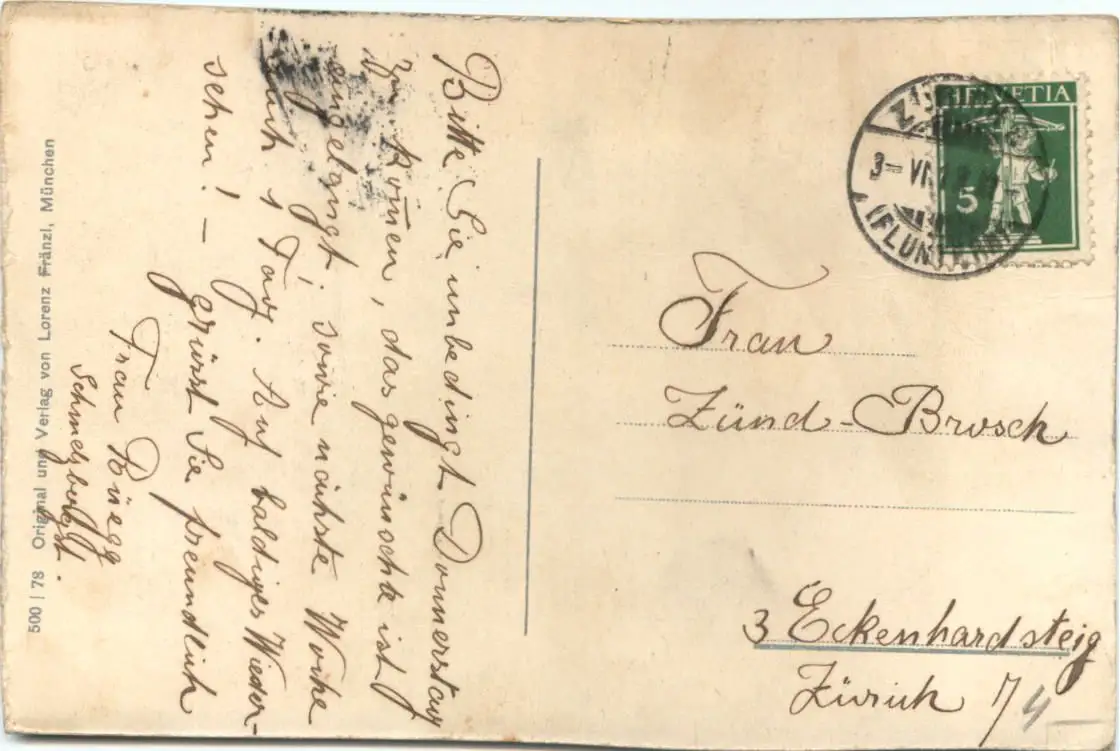 Bitte Sie unbedingt Donnerstag
zu kom̄en, das gewünschte ist
eingelangt; sowie nächste Woche
noch 1 Tag. Auf baldiges Wieder-
sehen! –
grüsst Sie freundlich
Frau Rüegg
500 | 78 Original und Verlag von Lorenz Fränzl, München
HELVETIA
5
3– VII
(FLUNTERN)
Frau
Zünd-Brosch
3 Eckenhardsteig
Zürich 7/4